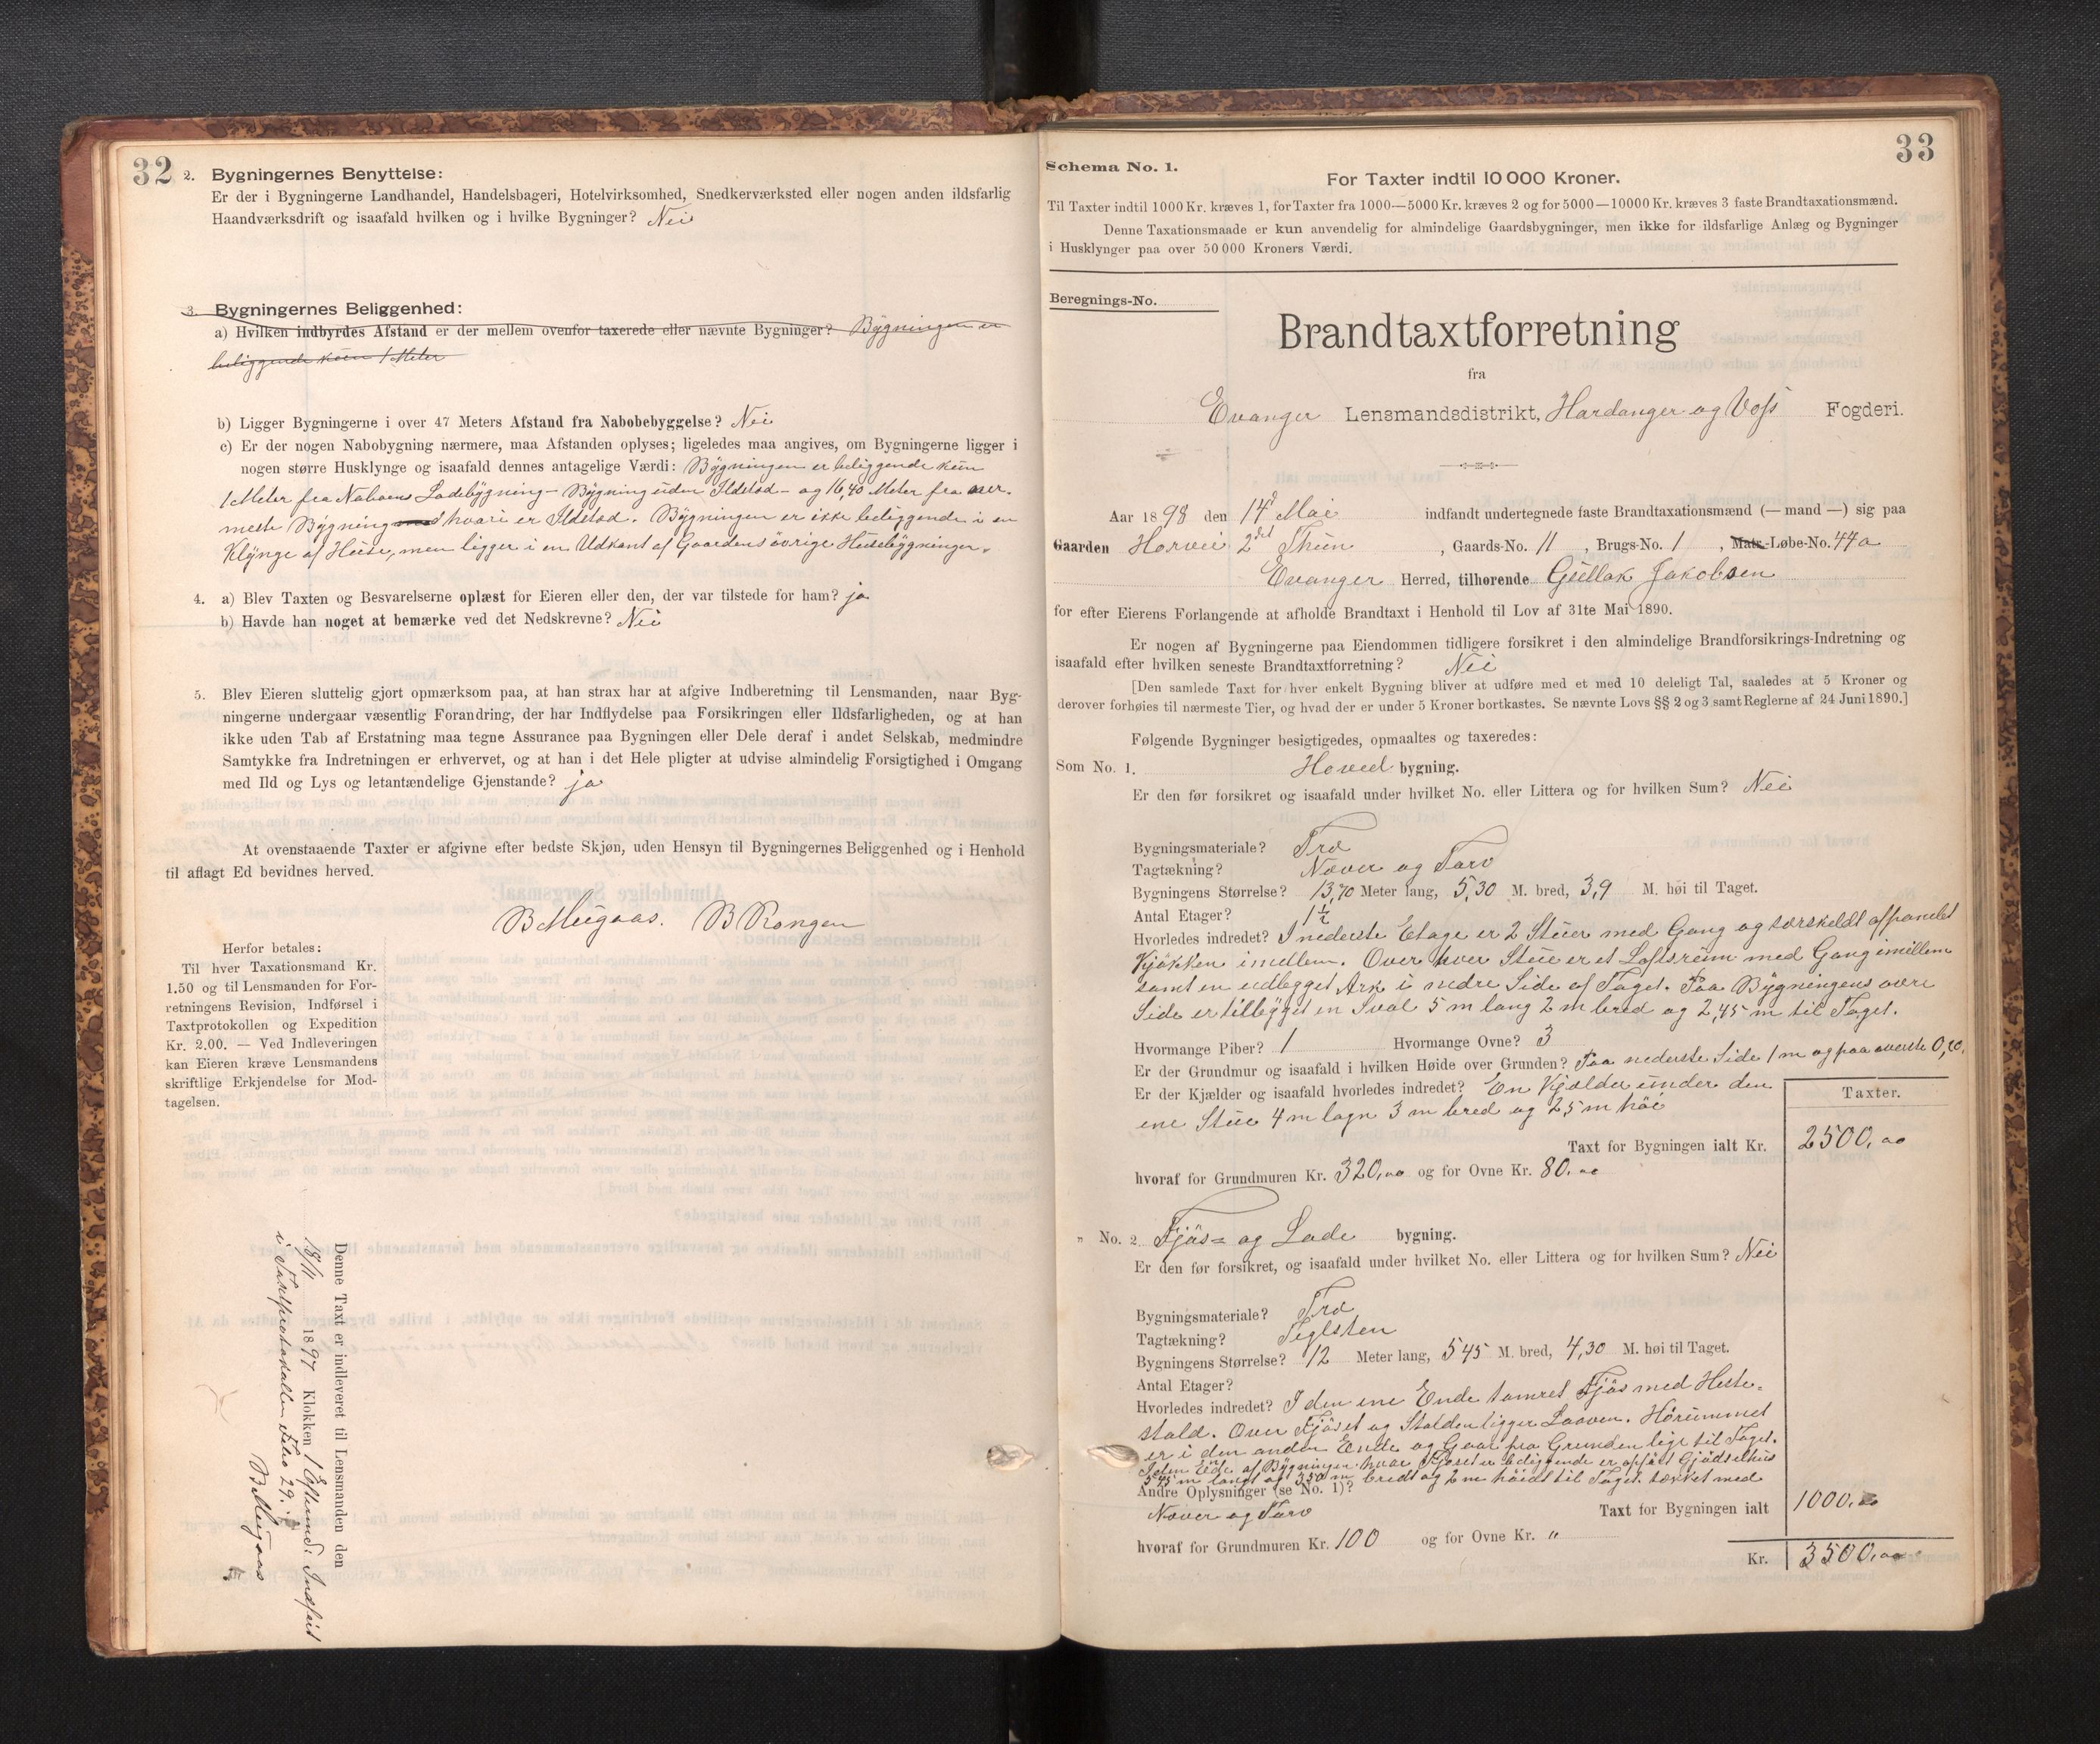 32
2. Bygningernes Benyttelse:
Er der i Bygningerne Landhandel, Handelsbageri, Hotelvirksomhed, Snedkerværksted eller nogen anden ildsfarlig
Haandværksdrift og isaafald hvilken og i hvilke Bygninger? Nei
3. Bygningernes Beliggenhed:
a) Hvilken indbyrdes Afstand er der mellem ovenfor taxerede eller nævnte Bygninger? Bygningen er
beliggende kun 1 Meter
b) Ligger Bygningerne i over 47 Meters Afstand fra Nabobebyggelse? Nei
c) Er der nogen Nabobygning nærmere, maa Afstanden oplyses; ligeledes maa angives, om Bygningerne ligger i
nogen større Husklynge og isaafald dennes antagelige Værdi: Bygningen er beliggende kun
1 Meter fra Naboens Ladebygning - Bygning uden Ildsted - og 16,40 Meter fra nær-
meste Bygning hvori er Ildsted. Bygningen er ikke beliggende i en
Klynge af Huse, men ligger i en Udkant af Gaardens øvrige Husebygninger.
4. a) Blev Taxten og Besvarelserne oplæst for Eieren eller den, der var tilstede for ham? ja
b) Havde han noget at bemærke ved det Nedskrevne? Nei
5. Blev Eieren sluttelig gjort opmærksom paa, at han strax har at afgive Indberetning til Lensmanden, naar Byg-
ningerne undergaar væsentlig Forandring, der har Indflydelse paa Forsikringen eller Ildsfarligheden, og at han
ikke uden Tab af Erstatning maa tegne Assurance paa Bygningen eller Dele deraf i andet Selskab, medmindre
Samtykke fra Indretningen er erhvervet, og at han i det Hele pligter at udvise almindelig Forsigtighed i Omgang
med Ild og Lys og letantændelige Gjenstande? ja
At ovenstaaende Taxter er afgivne efter bedste Skjøn, uden Hensyn til Bygningernes Beliggenhed og i Henhold
til aflagt Ed bevidnes herved.
B Mugaas. B Rongen
Herfor betales:
Til hver Taxationsmand Kr.
1.50 og til Lensmanden for For-
retningens Revision, Indførsel i
Taxtprotokollen og Expedition
Kr. 2.00. — Ved Indleveringen
kan Eieren kræve Lensmandens
skriftlige Erkjendelse for Mod-
tagelsen.
Denne Taxt er indleveret til Lensmanden den
18/11 1897 Klokken 1 Efterm: Indført
i Taxtprotokollen Folio 29.
B Mugaas
33
Schema No. 1.
For Taxter indtil 10 000 Kroner.
Til Taxter indtil 1000 Kr. kræves 1, for Taxter fra 1000—5000 Kr. kræves 2 og for 5000—10000 Kr. kræves 3 faste Brandtaxationsmænd.
Denne Taxationsmaade er kun anvendelig for almindelige Gaardsbygninger, men ikke for ildsfarlige Anlæg og Bygninger
i Husklynger paa over 50 000 Kroners Værdi.
Beregnings-No.
Brandtaxtforretning
fra
Evanger Lensmandsdistrikt, Hardanger og Voss Fogderi.
Aar 1898 den 14d Mai indfandt undertegnede faste Brandtaxationsmænd (— mand —) sig paa
Gaarden Horvei 2det Thun, Gaards-No. 11, Brugs-No. 1, Matr.-Løbe-No. 44a
Evanger Herred, tilhørende Gullak Jakobsen
for efter Eierens Forlangende at afholde Brandtaxt i Henhold til Lov af 31te Mai 1890.
Er nogen af Bygningerne paa Eiendommen tidligere forsikret i den almindelige Brandforsikrings-Indretning og
isaafald efter hvilken seneste Brandtaxtforretning? Nei
[Den samlede Taxt for hver enkelt Bygning bliver at udføre med et med 10 deleligt Tal, saaledes at 5 Kroner og
derover forhøies til nærmeste Tier, og hvad der er under 5 Kroner bortkastes. Se nævnte Lovs §§ 2 og 3 samt Reglerne af 24 Juni 1890.]
Følgende Bygninger besigtigedes, opmaaltes og taxeredes:
Som No. 1. Hoved bygning.
Er den før forsikret og isaafald under hvilket No. eller Littera og for hvilken Sum? Nei
Bygningsmateriale? Træ
Tagtækning? Næver og Tørv
Bygningens Størrelse? 13,70 Meter lang, 5,30 M. bred, 3,9 M. høi til Taget.
Antal Etager? 1½
Hvorledes indredet? I nederste Etage er 2 Stuer med Gang og særskeldt afpanelet
Kjøkken imellem. Over hver Stue er et Loftsrum med Gang imellem
samt en udlegget Ark i nedre Side af Taget. Paa Bygningens øvre
Side er tillegget en Sval 5 m lang 2 m bred og 2,45 m til Taget.
Hvormange Piber? 1 Hvormange Ovne? 3
Er der Grundmur og isaafald i hvilken Høide over Grunden? Paa nederste Side 1 m og paa øverste 0,20.
Er der Kjælder og isaafald hvorledes indredet? En Kjælder under den
ene Stue 4 m lagn 3 m bred og 2,5 m høi
Taxter.
Taxt for Bygningen ialt Kr. 2500,00
hvoraf for Grundmuren Kr. 320,00 og for Ovne Kr. 80,00
„ No. 2 Fjøs= og Lade bygning.
Er den før forsikret, og isaafald under hvilket No. eller Littera og for hvilken Sum? Nei
Bygningsmateriale? Træ
Tagtækning? Teglsten
Bygningens Størrelse? 12 Meter lang, 5 45 M. bred, 4,30 M. høi til Taget.
Antal Etager?
Hvorledes indredet? I den ene Ende tømret Fjøs med Heste-
stald. Over Fjøset og Stalden ligger Laaven. Hørummet
er i den anden Ende og Gaar fra Grunden lige til Taget.
I den Ende af Bygningen hvor Fjøset er beliggende er opført Gjødselhus
5,45 m langt og 3,50 m bredt og 2 m høidt til Taget tækket med
Andre Oplysninger (se No. 1)?
Næver og Tørv
Taxt for Bygningen ialt 1000,
hvoraf for Grundmuren Kr. 100 og for Ovne Kr. "
Kr. 3500,00